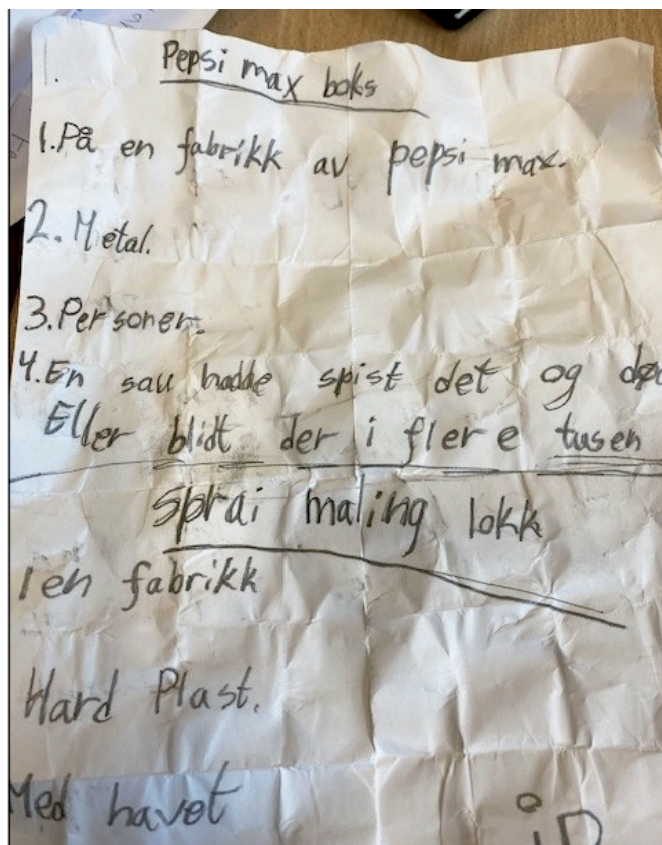 Pepsi max boks
1. På en fabrikk av pepsi max.
2. Metal.
3. Personer.
4. En sau hadde spist det og
Eller blidt der i flere tusen
Sprai maling lokk
I en fabrikk
Hard Plast.
Med havet